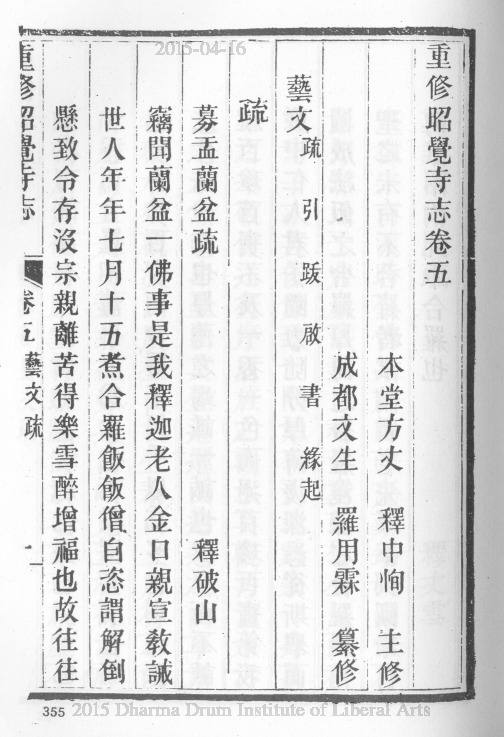 2015-04-16
重修昭覺寺志卷五
本堂方丈 釋中恂 主修
成都文生 羅用霖 纂修
藝文 疏 引 跋 啟 書 緣起
疏
募盂蘭盆疏 釋破山
竊聞蘭盆 佛事是我釋迦老人金口親宣教誡
世人年年七月十五煮合羅飯飯僧自恣謂解倒
懸致令存沒宗親離苦得樂雪醉增福也故往往
重修昭覺寺志 卷五 藝文 疏 一
355 2015 Dharma Drum Institute of Liberal Arts